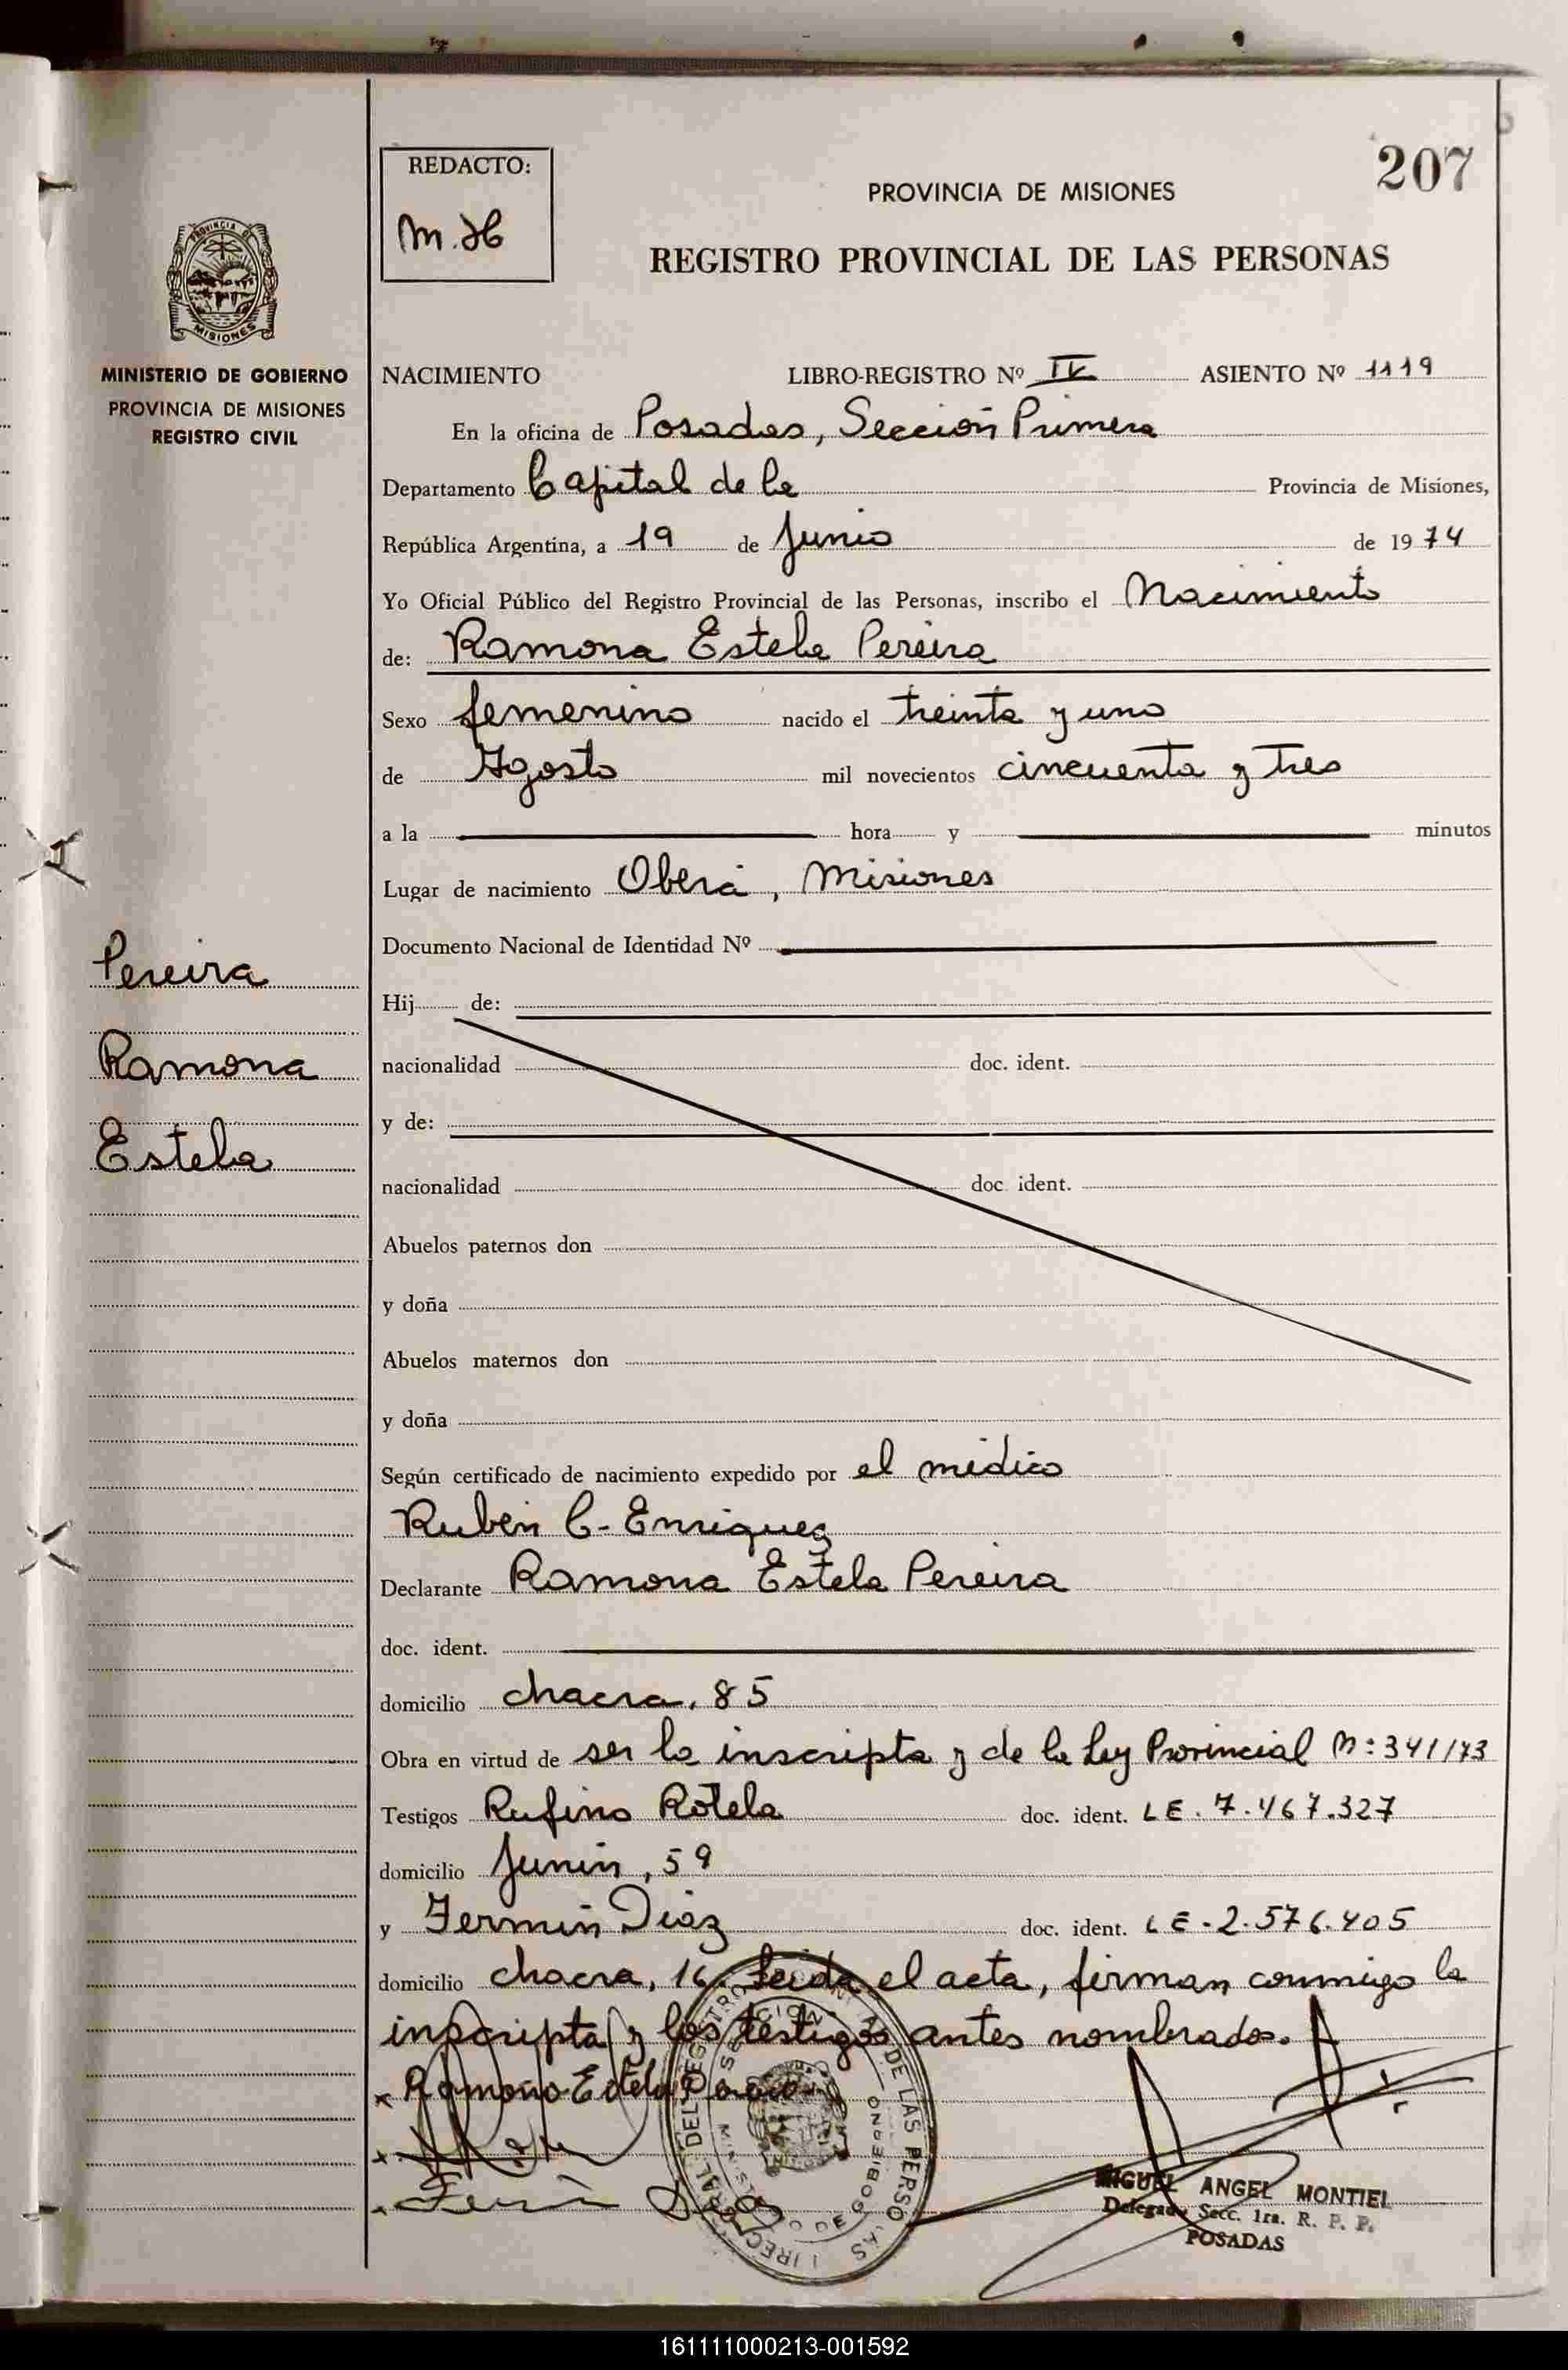 207
REDACTO:
M.H
PROVINCIA DE MISIONES
REGISTRO PROVINCIAL DE LAS PERSONAS
PROVINCIA DE
MISIONES
MINISTERIO DE GOBIERNO
PROVINCIA DE MISIONES
REGISTRO CIVIL
Pereira
Ramona
Estela
NACIMIENTO LIBRO-REGISTRO Nº IV ASIENTO Nº 1119
En la oficina de Posadas, Sección Primera
Departamento Capital de la Provincia de Misiones,
República Argentina, a 19 de Junio de 1974
Yo Oficial Público del Registro Provincial de las Personas, inscribo el Nacimiento
de: Ramona Estela Pereira
Sexo femenino nacido el treinta y uno
de Agosto mil novecientos cincuenta y tres
a la hora y minutos
Lugar de nacimiento Oberá, Misiones
Documento Nacional de Identidad Nº
Hij de:
nacionalidad doc. ident.
y de:
nacionalidad doc. ident.
Abuelos paternos don
y doña
Abuelos maternos don
y doña
Según certificado de nacimiento expedido por el médico
Rubén C. Enriquez
Declarante Ramona Estela Pereira
doc. ident.
domicilio chacra, 85
Obra en virtud de ser la inscripta y de la Ley Provincial N: 341/73
Testigos Rufino Rotela doc. ident. LE. 7.467.327
domicilio Junín, 59
y Fermín Díaz doc. ident. LE-2.576.405
domicilio chacra, 16. Leida el acta, firman conmigo la
inscripta y los testigos antes nombrados.
x Ramona Estela Pereira
MIGUEL ANGEL MONTIEL
Delegado Secc. 1ra. R. P. P.
POSADAS
161111000213-001592